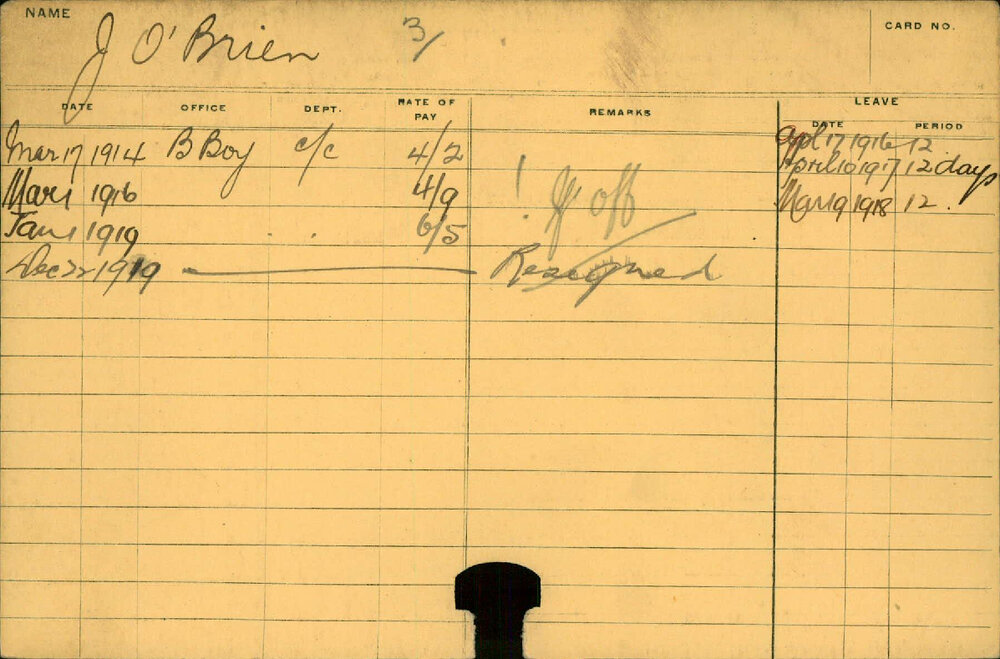 NAME J O'Brien 3/ CARD NO.
DATE OFFICE DEPT. RATE OF PAY REMARKS LEAVE
DATE PERIOD
Mar 17 1914 B Boy c/c 4/2 Apl 17 1916 12
April 10 1917 12 days
Mar 1 1916 4/9 off Mar 19 1918 12.
Jan 1 1919 . . 6/5
Dec 22 1919 Resigned